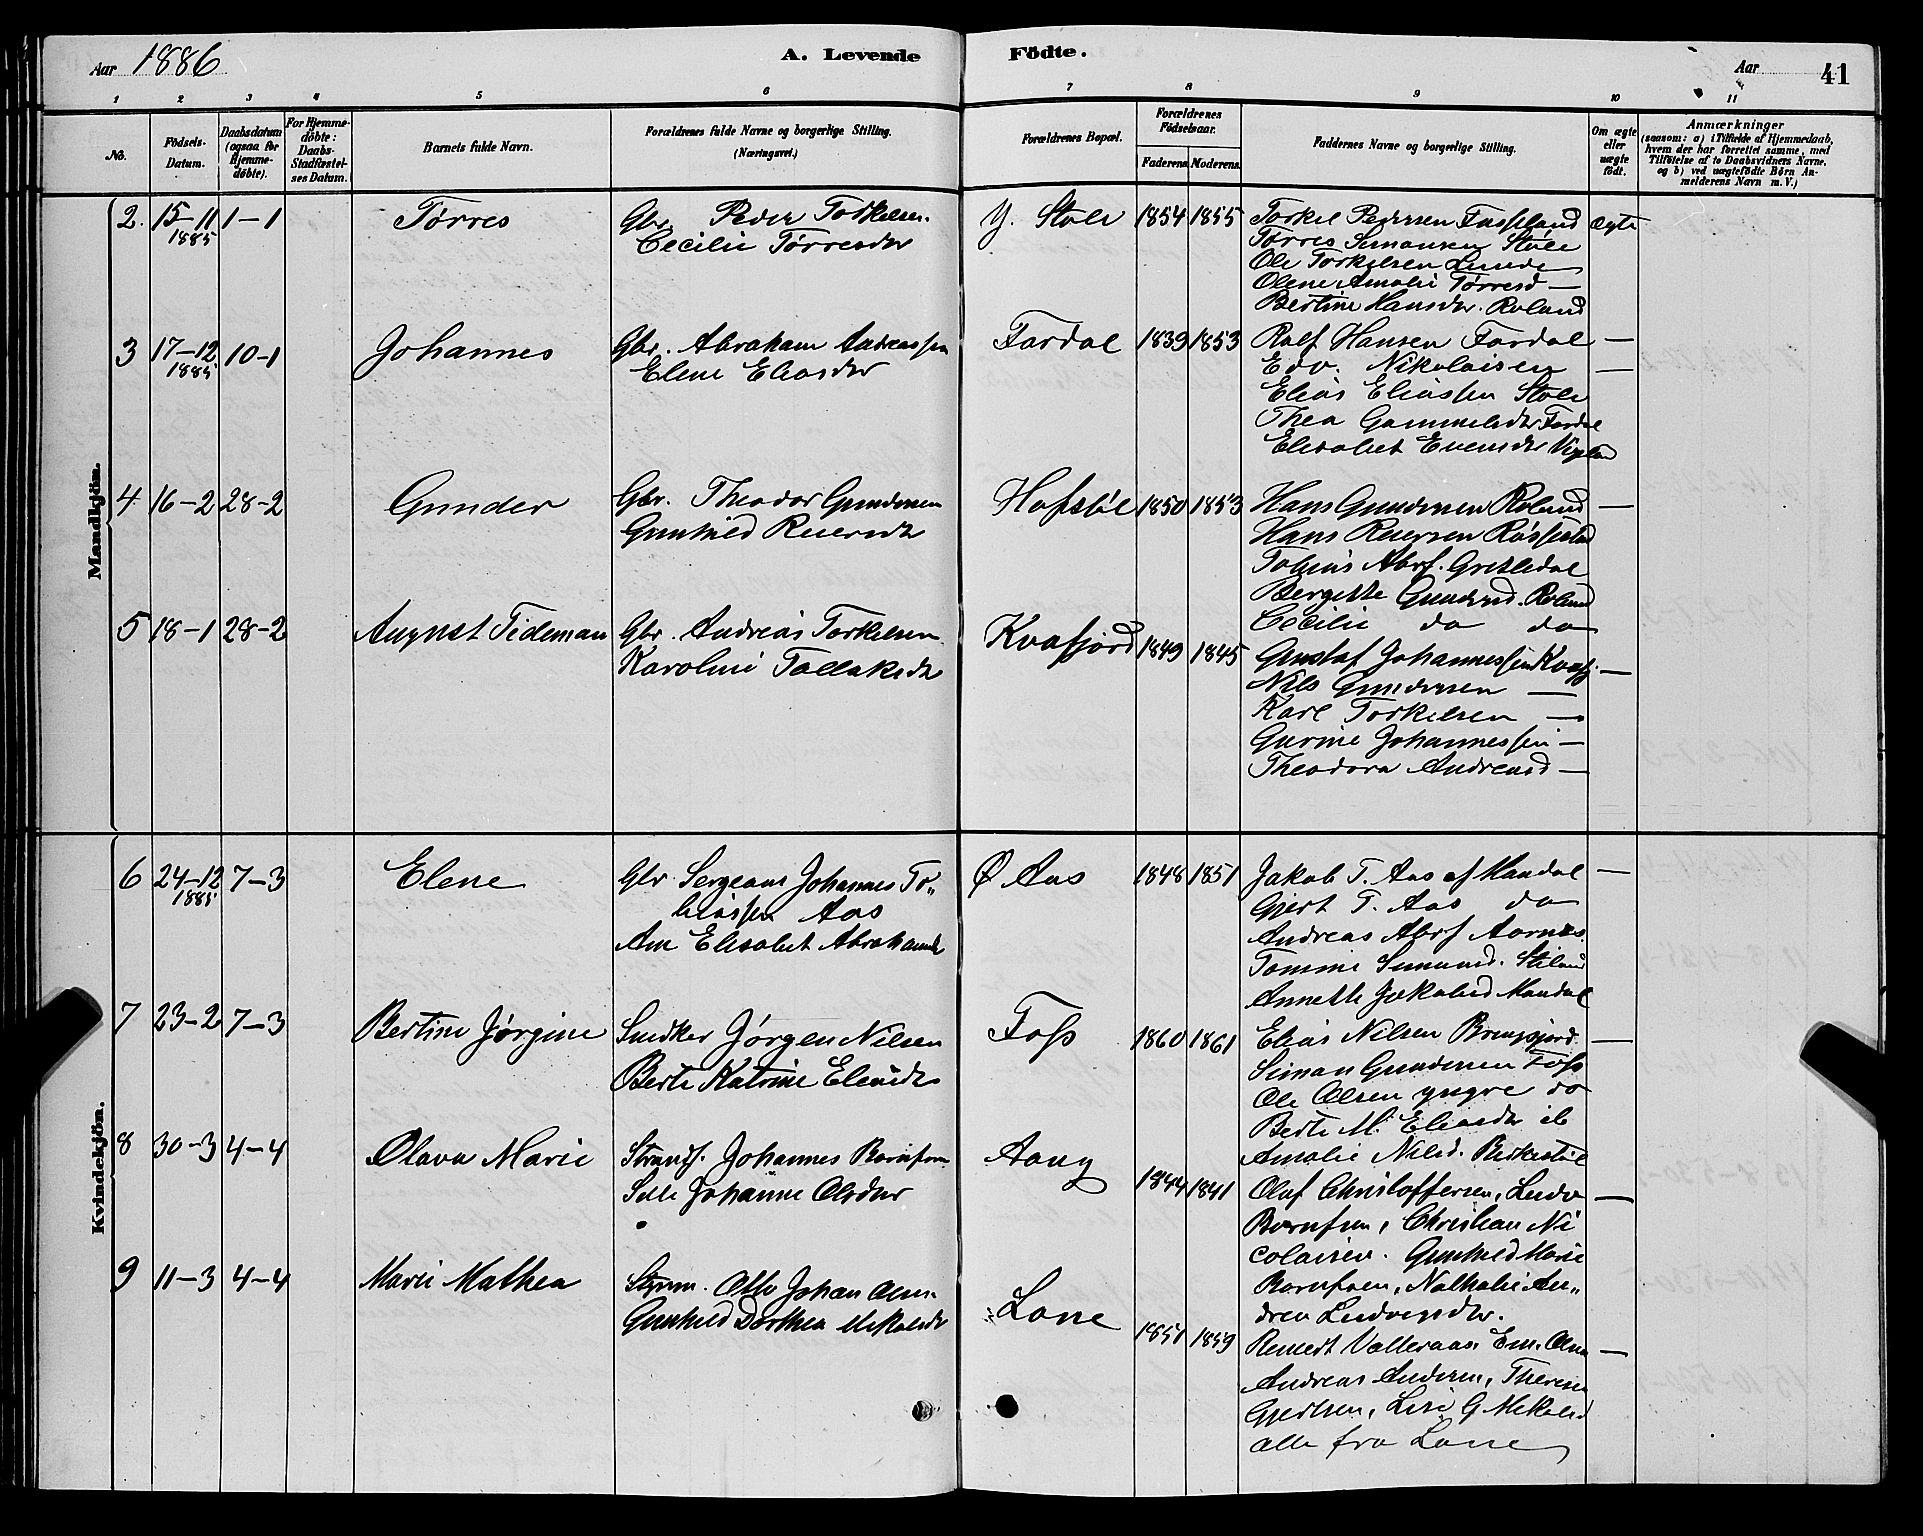 Aar 1886
A. Levende Födte.
Aar 41
1 2 3 4 5 6 7 8 9 10 11
No.
Födsels-Datum.
Daabsdatum (ogsaa for Hjemme-döbte).
For Hjemme-döbte: Daabs-Stadfæstel-ses Datum.
Barnets fulde Navn.
Forældrenes fulde Navne og borgerlige Stilling. (Næringsvei.)
Forældrenes Bopæl.
Forældrenes Födselsaar.
Faderens Moderens
Faddernes Navne og borgerlige Stilling.
Om ægte eller uægte födt.
Anmærkninger
(saasom: a) i Tilfælde af Hjemmedaab, hvem der har forrettet samme, med Tilföielse af to Daabsvidners Navne, og b) ved uægtefödte Börn An-melderens Navn m. V.)
Mandkjön.
2. 15-11 1885 1-1 Tørres
Gbr. Peder Torkelsen
Cecilie Tørresdtr
Y. Støle 1854 1855
Torkel Pedersen Fasseland ægte
Tørres Simonsen Støle
Ole Torkelsen Lunde
Olene Amalie Tørresd —
Bertine Hansdtr. Roland
3 17-12 1885 10-1 Johannes
Gbr. Abraham Andreassen
Elene Eliasdtr
Fardal 1839 1853
Rolf Hansen Fardal —
Edv. Nikolaisen —
Elias Eliassen Støle
Thea Gammelsdtr Fardal
Elisabet Evensdtr
4 16-2 28-2 Gunder
Gbr. Theodor Gundersen
Gunhild Reiersdtr
Hafstøl 1850 1853
Hans Gundersen Roland —
Hans Reiersen Røssestad
Tobias Abrs. Gretledal
Bergitte Gundersd. Roland
Cecilie do do
5 18-1 28-2 August Tideman
Gbr. Andreas Torkelsen
Karoline Tallaksdtr
Kvafjord 1849 1845
Gustaf Johannessen Kvafj. —
Nils Gundersen —
Karl Torkelsen —
Gurine Johannessen —
Theodora Andreasd —
Kvindekjön.
6 24-12 1885 7-3 Elene
Gbr Sergeant Johannes To„
biassen Aas
Ane Elisabet Abrahamsdtr
Ø Aas 1848 1851
Jakob T. Aas af Mandal —
Gjert T. Aas do
Andreas Abrs Aarnes
Tomine Simonsd.
Annette Jakobsd Mandal
7 23-2 7-3 Bertine Jørgine
Snedker Jørgen Nilsen
Berte Katrine Eliasdtr
Foss 1860 1861
Elias Nilsen —
Simon Gundersen Foss
Ole Olsen yngre do
Berte M. Eliasdtr ib
Amalie Nilsd. Birkestøl
8 30-3 4-4 Olava Marie
Strands. Johannes
Selle Johanne Olsdtr
Aavg 1844 1841
Oluf Christoffersen, Ludv —
Christian Ni
colaisen. Gunhild Marie
Nathalie An„
drea Ludvigsdtr.
9 11-3 4-4 Marie Mathea
Styrm. Otto Johan Olsen
Gunhild Dorthea Mikalsdtr
Lone 1851 1859
Reinert Valleraas, Em. Olsen —
Andreas Andersen, Therese
Gjertsen, Lise G Mikalsd
alle fra Lone